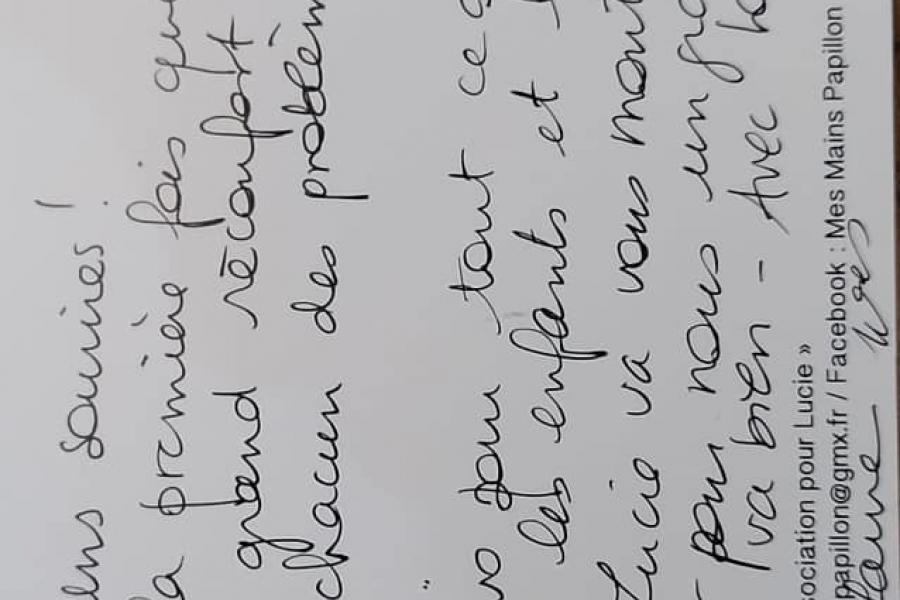 ens sourires !
la première fois que
grand réconfort
chacun des problèm
"
vo pour tout ce q
les enfants et
Lucie va vous mont
- pour nous un gra
va bien - Avec
sociation pour Lucie »
papillon@gmx.fr / Facebook : Mes Mains Papillon